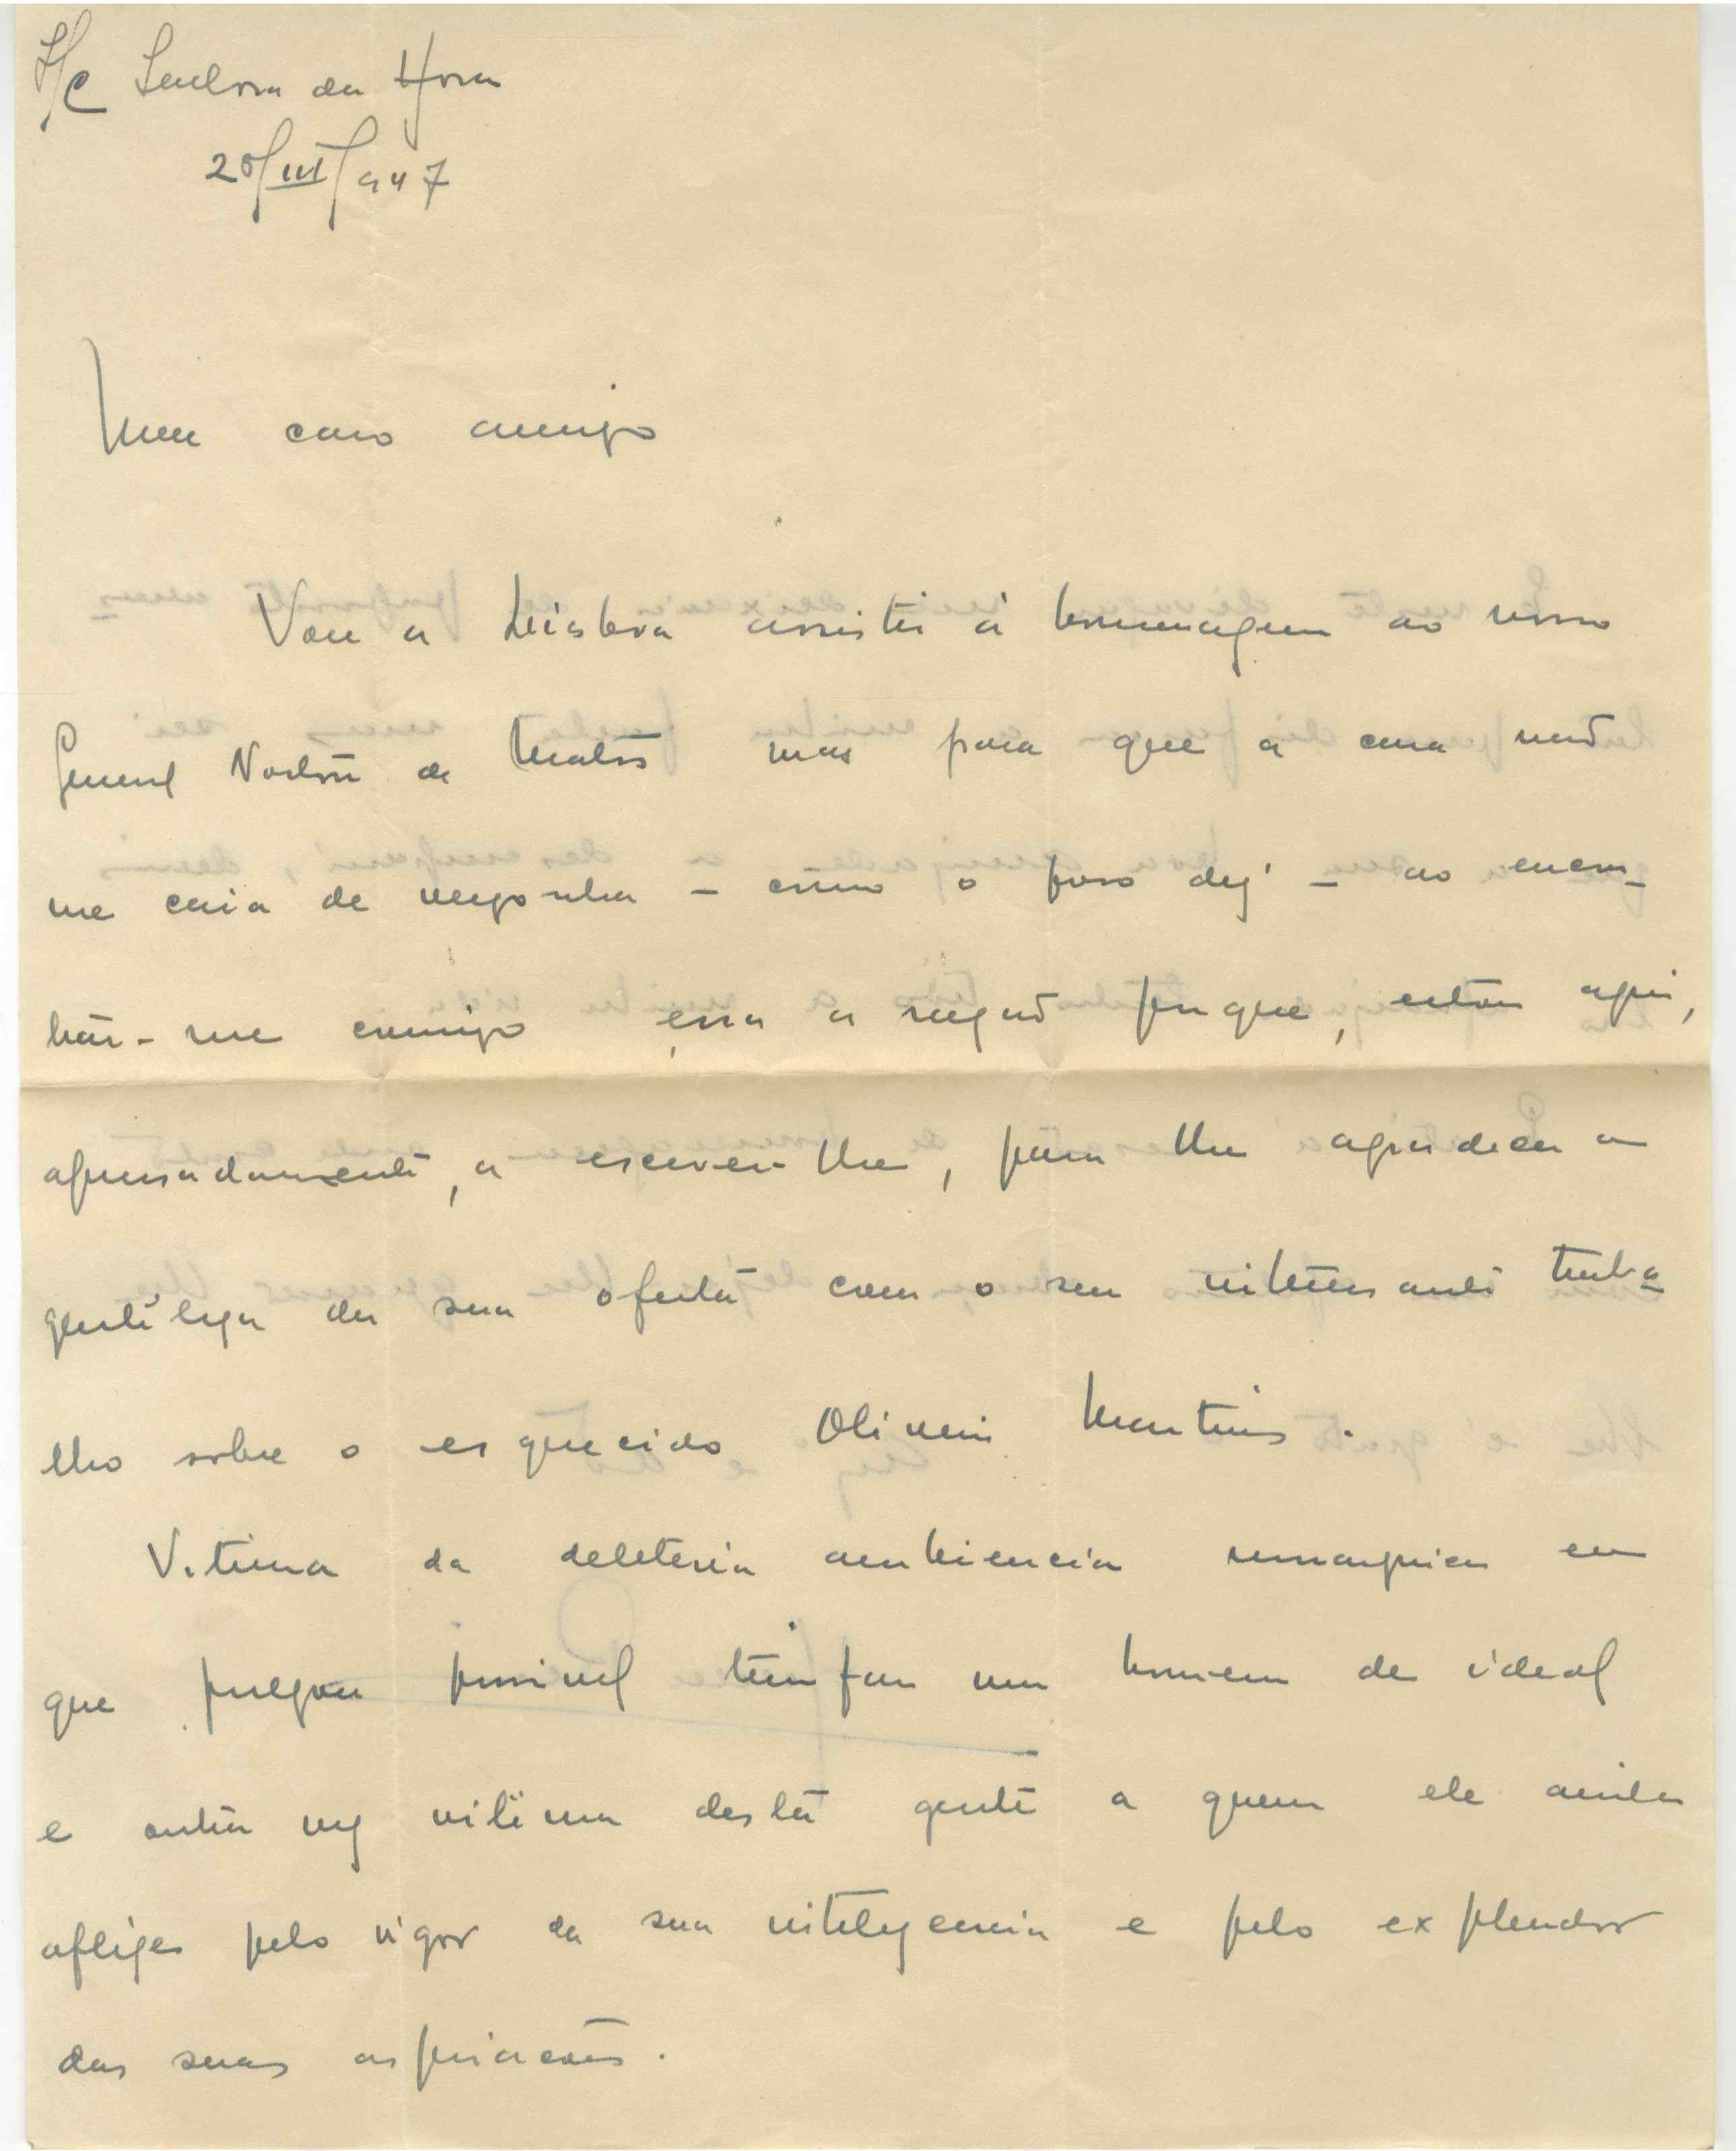 S/C Senhora da Hora
20/III/947
Meu caro amigo
Vou a Lisboa assistir á homenagem ao nosso
General Norton de Matos mas para que a cara não
me caia de vergonha – como o povo diz – ao encon-
trár-me comigo, essa a razão porque, estou aqui,
apressadamente, a escrever-lhe, para lhe agradecer a
gentileza da sua oferta com o seu interessante traba
lho sobre o esquecido Oliveira Martins.
Vitima da deleteria ambiencia monarquica em
que julgou possivel triunfar um homem de ideal
e outra vez vitima desta gente a quem ele ainda
aflige pelo vigor da sua inteligencia e pelo explendor
das suas aspirações.